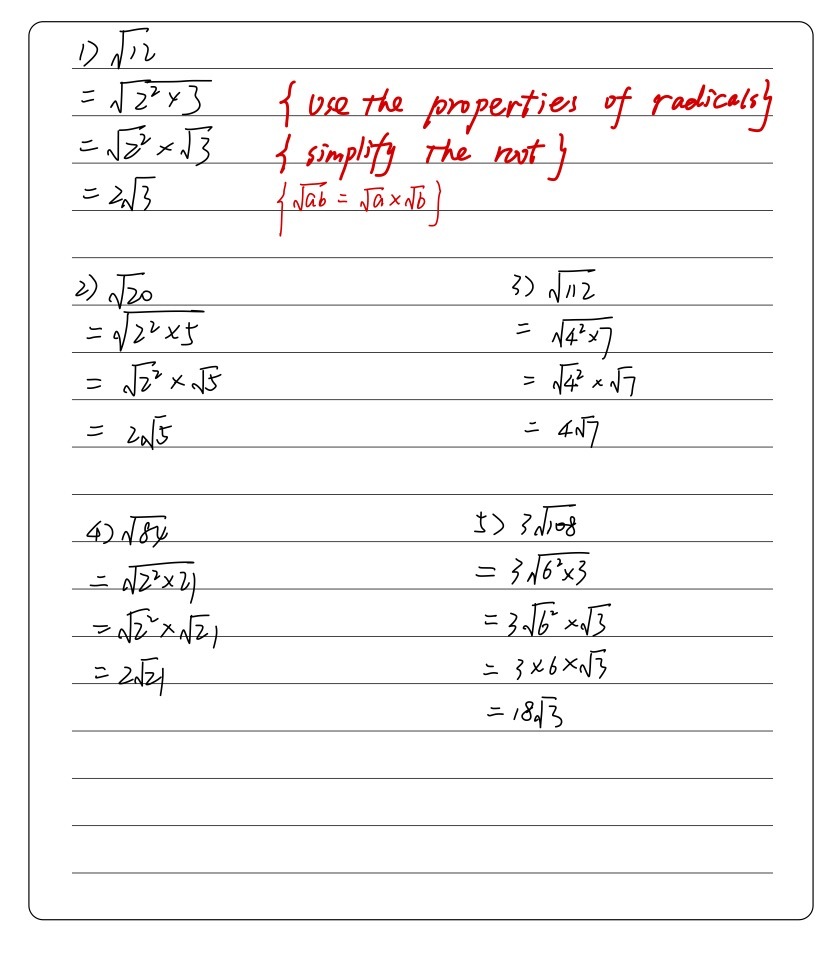 1) √12
= √(2² × 3) { Use the properties of radicals}
= √2² × √3 { simplify the root }
= 2√3 {√ab = √a × √b }
2) √20
= √(2² × 5)
= √2² × √5
= 2√5
3) √112
= √(4² × 7)
= √4² × √7
= 4√7
4) √84
= √(2² × 21)
= √2² × √21
= 2√21
5) 3√108
= 3√(6² × 3)
= 3√6² × √3
= 3 × 6 × √3
= 18√3